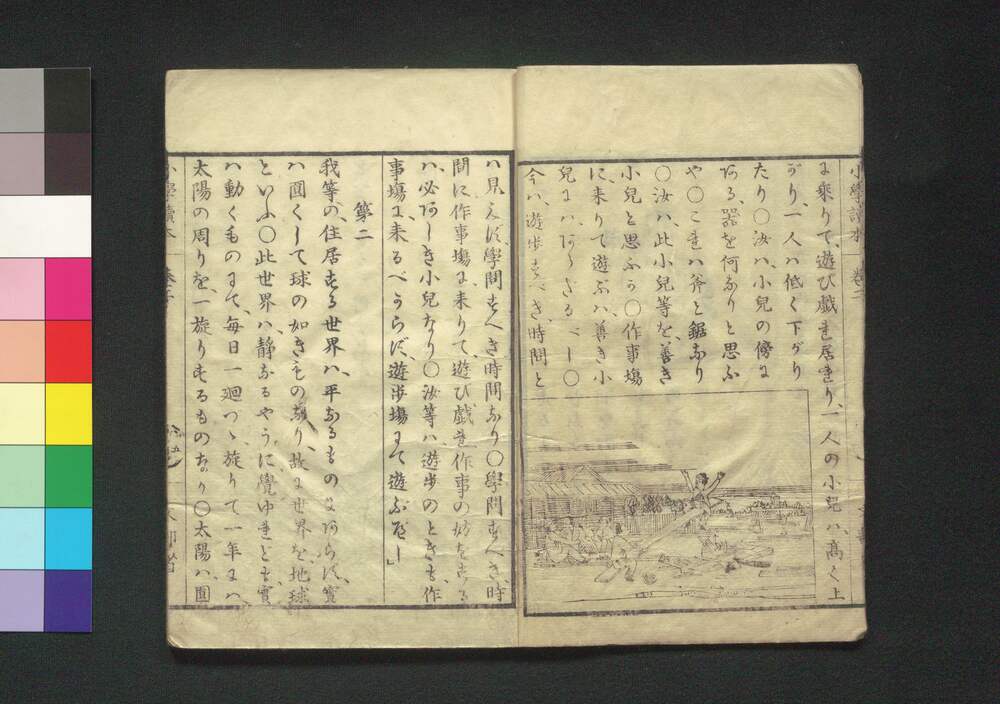 小學讀本　卷二
に乘りて、遊び戯れ居れり、一人の小兒ハ、高く上
がり、一人ハ低く下がり
たり〇汝ハ、小兒の傍に
ある、器を何なりと思ふ
や〇これハ斧と鋸なり
〇汝ハ、此小兒等を、善き
小兒と思ふか〇作事場
に來りて遊ぶハ、善き小
兒にハ、あらざるべし〇
今ハ、遊歩すべき、時間と
ハ見えず、學問すへき時間なり〇學問すへき、時
間に作事場に來りて、遊び戯れ作事の妨をする
ハ、必あしき小兒なり〇汝等ハ遊歩のときも、作
事塲に、來るべからず、遊歩塲にて遊ぶべし」
第二
我等の、住居する世界ハ、平なるものにあらず、實
ハ圓くして球の如きもの故に世界を、地球
といふ〇此世界ハ、靜なるやうに覺ゆれとも、實
ハ動くものにて、毎日一廻つゝ旋りて一年にハ
太陽の周りを、一旋りするものなり〇太陽ハ、圓
小學讀本　卷二